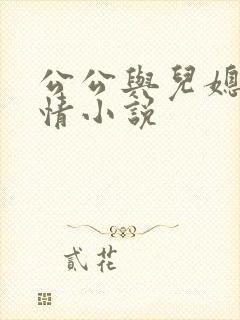 公公與兒媳
情小說
貳花